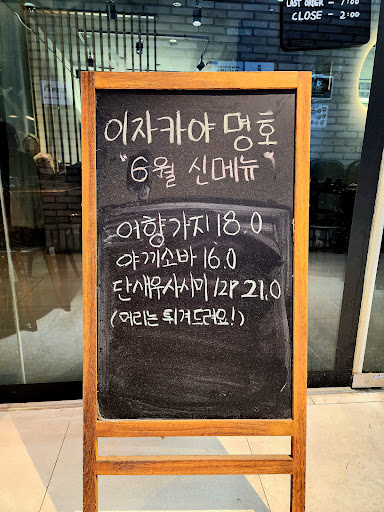 LAST ORDER - 1:00
CLOSE - 2:00
이자카야 명호
"6월 신메뉴"
어향가지 18.0
야끼소바 16.0
단새우사시미 12P 21.0
(머리는 튀겨드려요!)